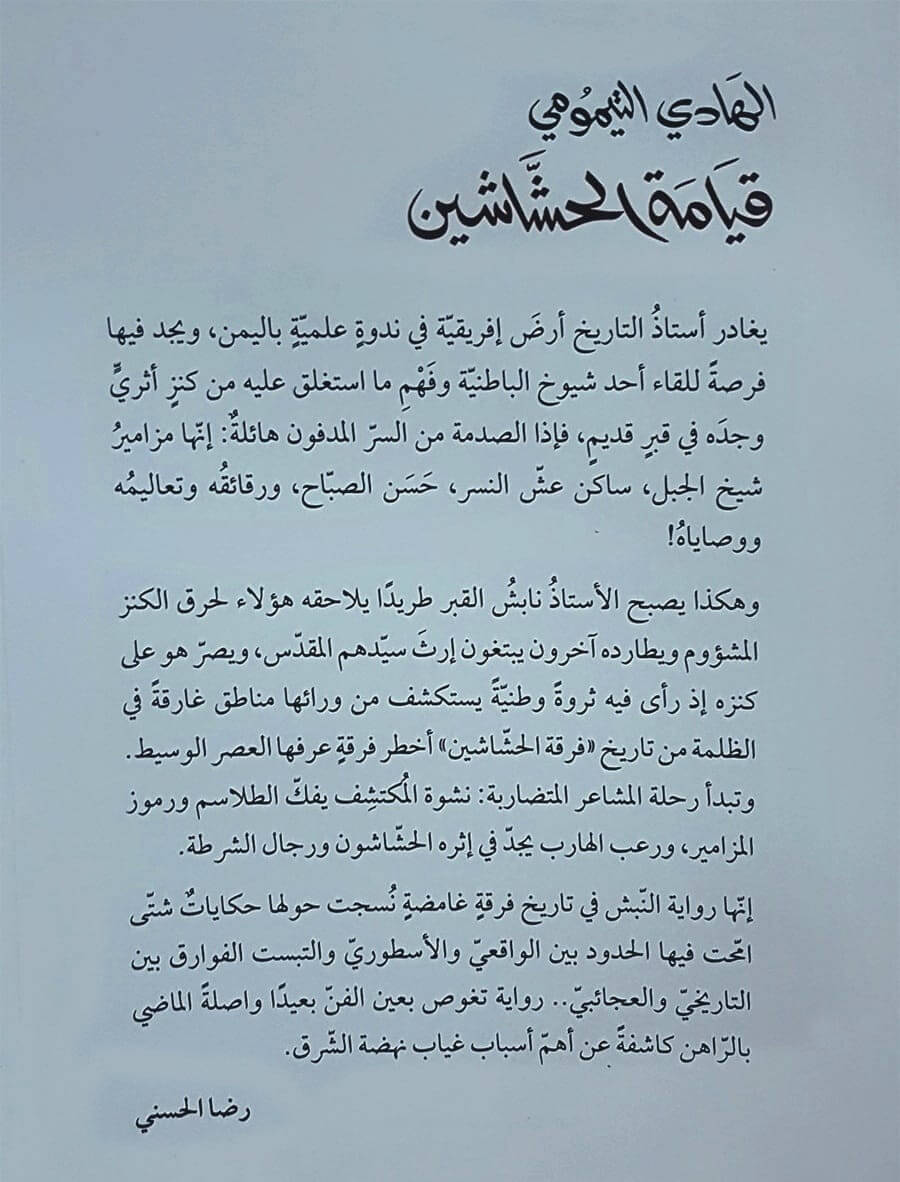 الهَادي التيمُومي
قيَامَة الحشَّاشين
يغادر أستاذُ التاريخ أرضَ إفريقيّة في ندوةٍ علميّةٍ باليمن، ويجد فيها
فرصةً للقاء أحد شيوخ الباطنيّة وفَهْمِ ما استغلق عليه من كنزٍ أثريٍّ
وجدَه في قبرٍ قديمٍ، فإذا الصدمة من السرّ المدفون هائلةٌ: إنّها مزاميرُ
شيخ الجبل، ساكن عشّ النسر، حَسَن الصبّاح، ورقائقُه وتعاليمُه
ووصاياهُ!
وهكذا يصبح الأستاذُ نابشُ القبر طريدًا يلاحقه هؤلاء لحرق الكنز
المشؤوم ويطارده آخرون يبتغون إرثَ سيّدهم المقدّس، ويصرّ هو على
كنزه إذ رأى فيه ثروةً وطنيّةً يستكشف من ورائها مناطق غارقةً في
الظلمة من تاريخ «فرقة الحشّاشين» أخطر فرقةٍ عرفها العصر الوسيط.
وتبدأ رحلة المشاعر المتضاربة: نشوة المُكتشِف يفكّ الطلاسم ورموز
المزامير، ورعب الهارب يجدّ في إثره الحشّاشون ورجال الشرطة.
إنّها رواية النّبش في تاريخ فرقةٍ غامضةٍ نُسجت حولها حكاياتٌ شتّى
امّحت فيها الحدود بين الواقعيّ والأسطوريّ والتبست الفوارق بين
التاريخيّ والعجائبيّ.. رواية تغوص بعين الفنّ بعيدًا واصلةً الماضي
بالرّاهن كاشفةً عن أهمّ أسباب غياب نهضة الشّرق.
رضا الحسني